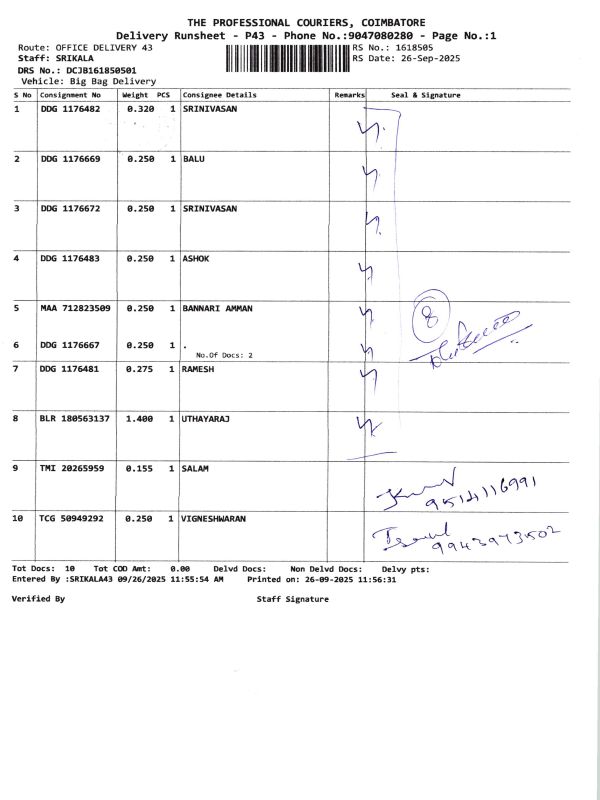 THE PROFESSIONAL COURIERS, COIMBATORE
Delivery Runsheet - P43 - Phone No.:9047080280 - Page No.:1
Route: OFFICE DELIVERY 43 RS No.: 1618505
Staff: SRIKALA RS Date: 26-Sep-2025
DRS No.: DCJB161850501
Vehicle: Big Bag Delivery
S No Consignment No Weight PCS Consignee Details Remarks Seal & Signature
1 DDG 1176482 0.320 1 SRINIVASAN
2 DDG 1176669 0.250 1 BALU
3 DDG 1176672 0.250 1 SRINIVASAN
4 DDG 1176483 0.250 1 ASHOK
5 MAA 712823509 0.250 1 BANNARI AMMAN
8
6 DDG 1176667 0.250 1 .
No.Of Docs: 2
7 DDG 1176481 0.275 1 RAMESH
8 BLR 180563137 1.400 1 UTHAYARAJ
9 TMI 20265959 0.155 1 SALAM
9514116991
10 TCG 50949292 0.250 1 VIGNESHWARAN
9943973502
Tot Docs: 10 Tot COD Amt: 0.00 Delvd Docs: Non Delvd Docs: Delvy pts:
Entered By :SRIKALA43 09/26/2025 11:55:54 AM Printed on: 26-09-2025 11:56:31
Verified By Staff Signature